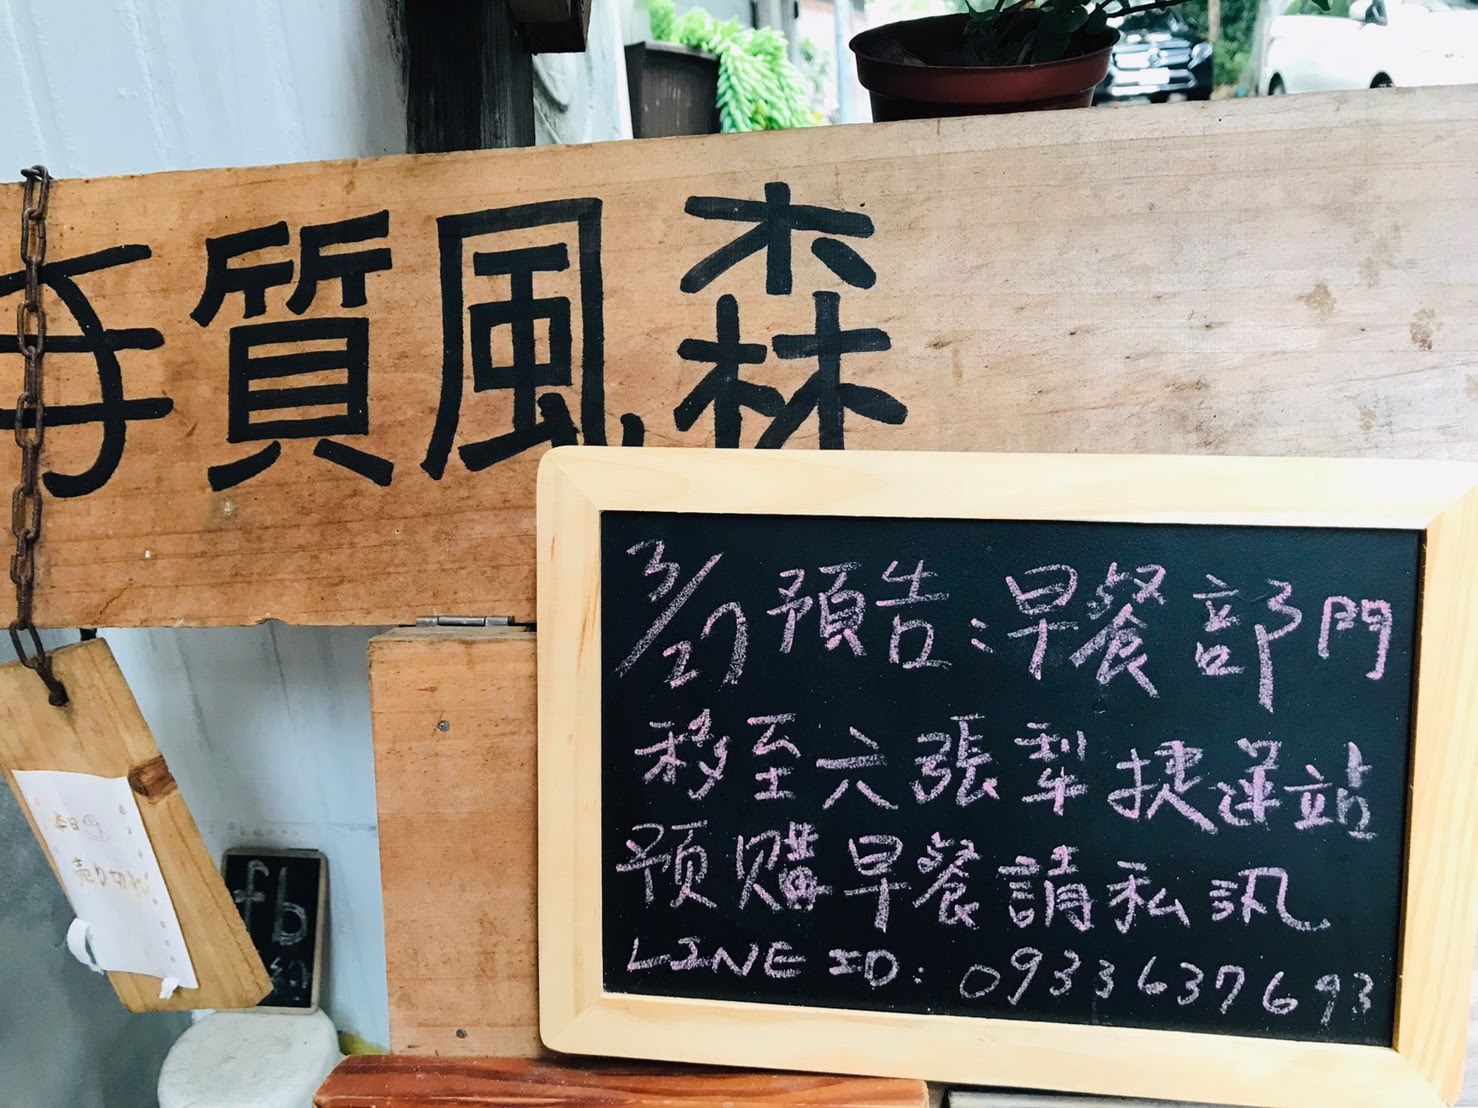 質風森
3/27預告:早餐部門
移至六張犁捷運站
預購早餐請私訊
LINE ID: 0933637693
本日
売り切れ
fb